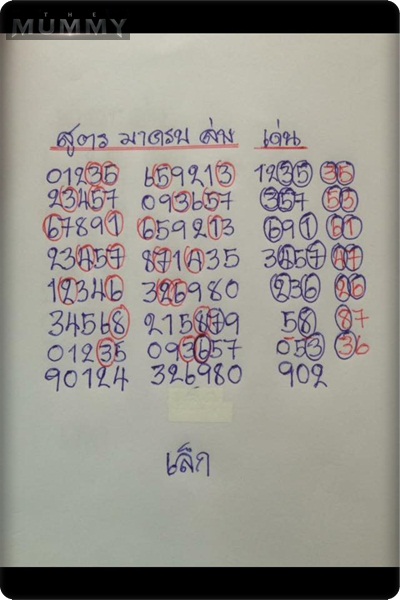 THE
MUMMY
สูตร มาครบ ล่าง เด่น
01235 659213 1235 35
23457 093657 357 53
67891 659213 691 61
23457 871435 3457 47
12346 326980 236 26
34568 215879 58 87
01235 093057 053 36
90124 326980 902
เลิก